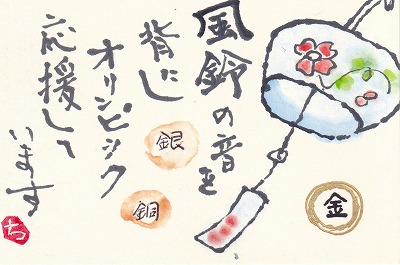 風鈴の音を
背にし
オリンピック
応援して
います
金
銀
銅
ち